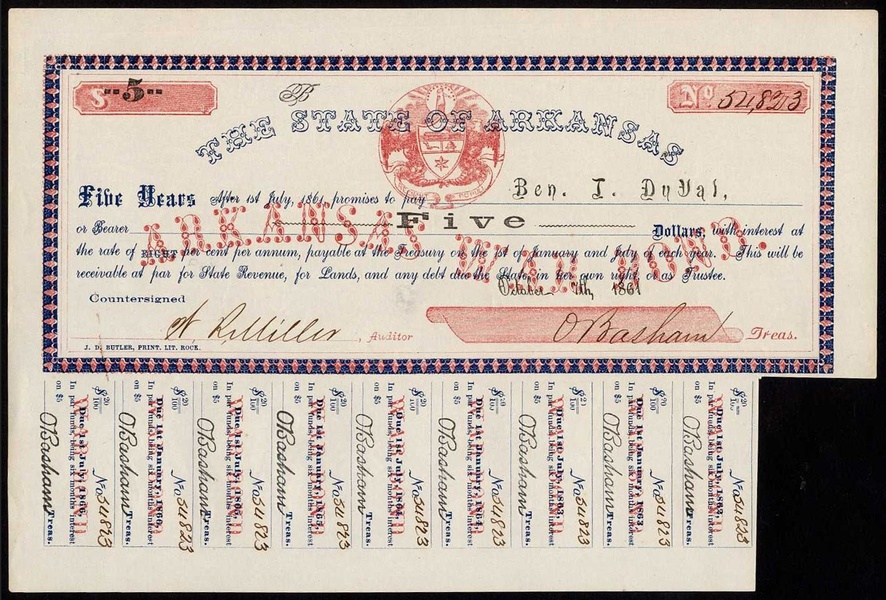 $ --5--
B
No. 54,823
THE STATE OF ARKANSAS
Five Years After 1st July, 1861, promises to pay Ben. T. DuVal,
or Bearer Five Dollars, with interest at
the rate of EIGHT per cent per annum, payable at the Treasury on the 1st of January and July of each year. This will be
receivable at par for State Revenue, for Lands, and any debt due the State, in her own right, or as Trustee.
ARKANSAS WAR BOND.
October 7th, 1861
Countersigned
W R Miller, Auditor
O Basham Treas.
J. D. BUTLER, PRINT. LIT. ROCK.
$ 20/100 No 54823
Due 1st July, 1866,
In par funds, being six months interest
on $5 O Basham Treas.
$ 20/100 No 54823
Due 1st January, 1866,
In par funds, being six months interest
on $5 O Basham Treas.
$ 20/100 No 54823
Due 1st July, 1865,
In par funds, being six months interest
on $5 O Basham Treas.
$ 20/100 No 54823
Due 1st January, 1865,
In par funds, being six months interest
on $5 O Basham Treas.
$ 20/100 No 54823
Due 1st July, 1864,
In par funds, being six months interest
on $5 O Basham Treas.
$ 20/100 No 54823
Due 1st January, 1864,
In par funds, being six months interest
on $5 O Basham Treas.
$ 20/100 No 54823
Due 1st July, 1863,
In par funds, being six months interest
on $5 O Basham Treas.
$ 20/100 No 54823
Due 1st January, 1863,
In par funds, being six months interest
on $5 O Basham Treas.
$ 20/100 No 54823
In par funds, being six months interest
on $5 O Basham Treas.